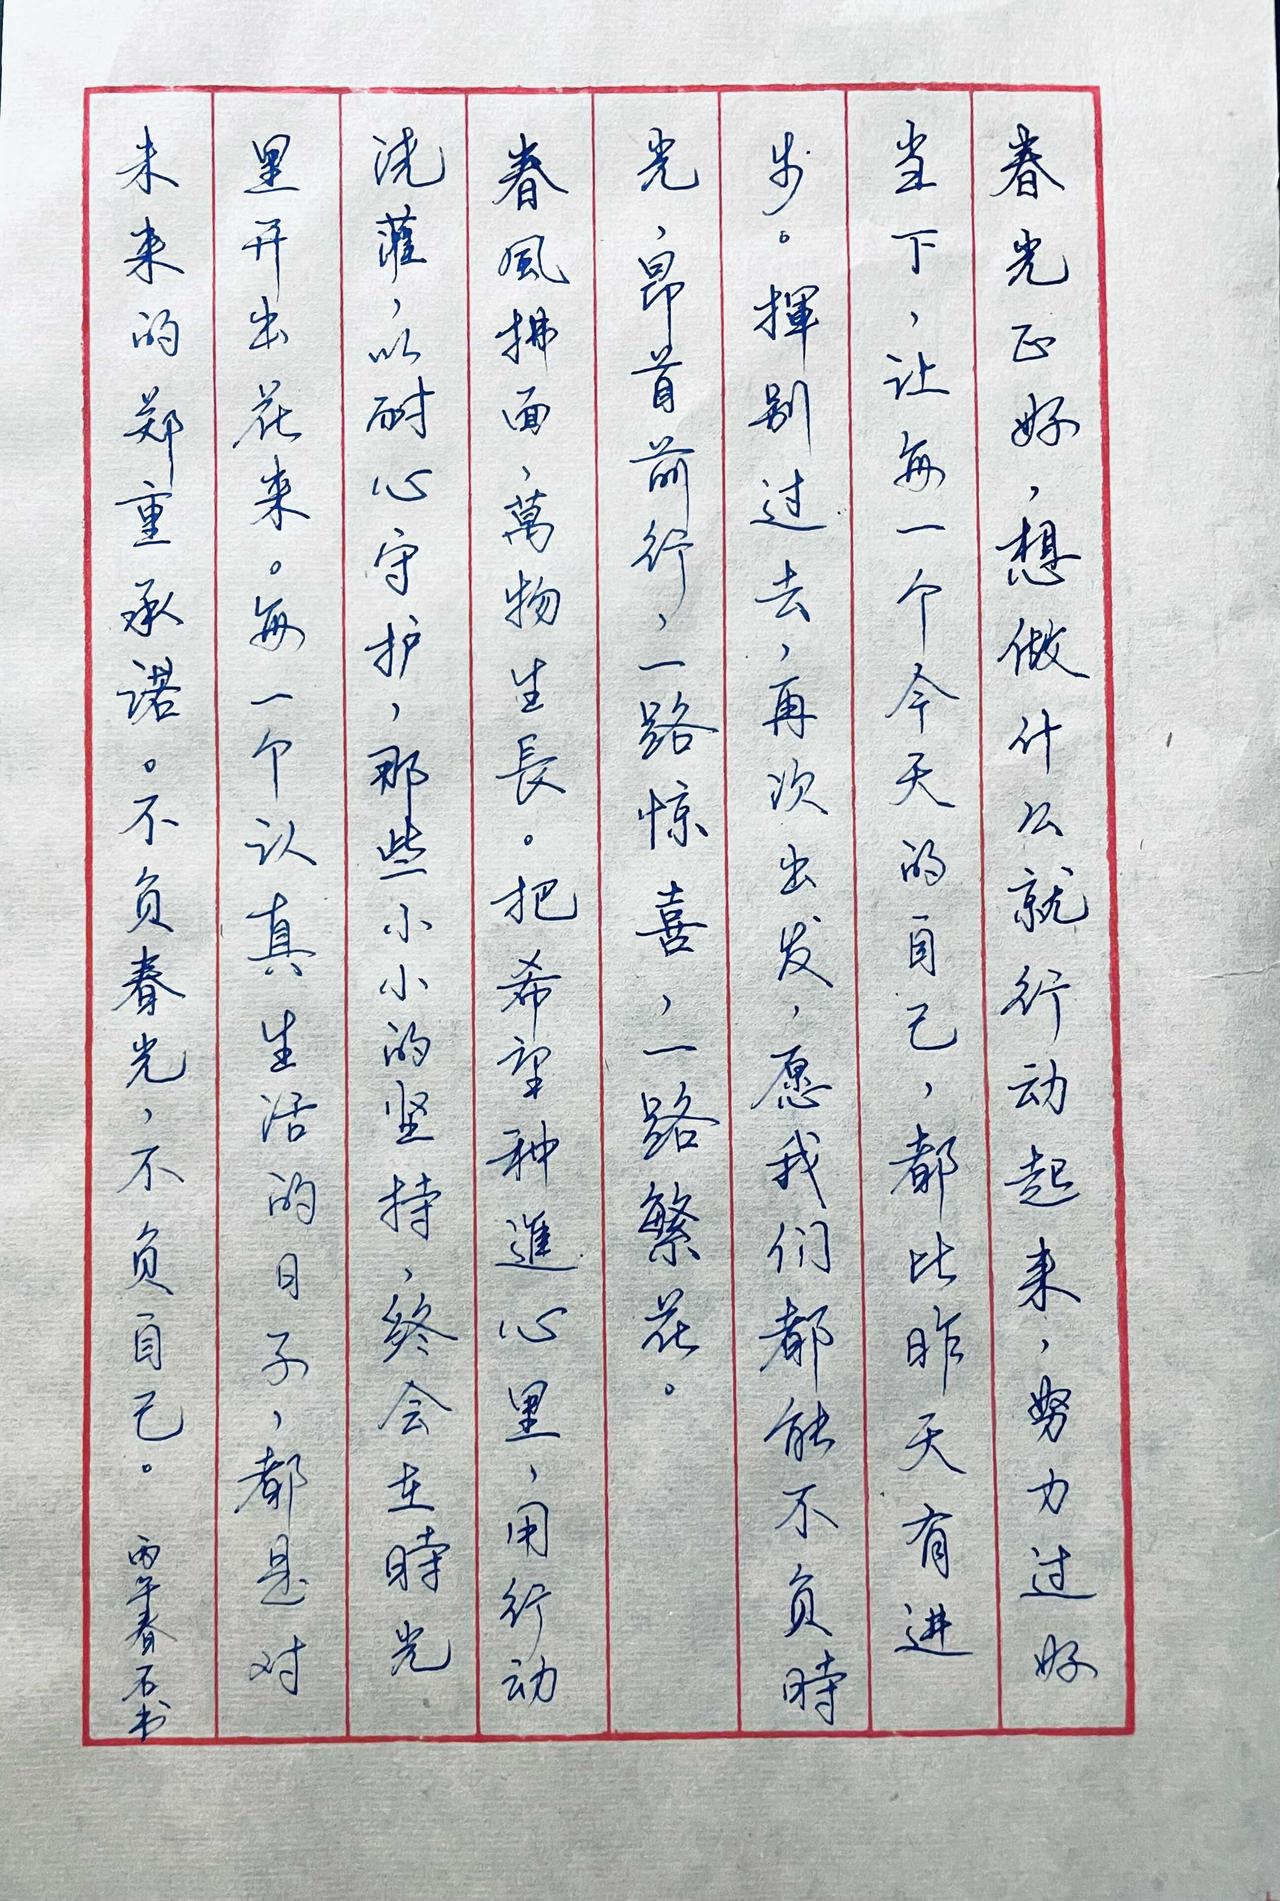 春光正好，想做什么就行动起来，努力过好
当下，让每一个今天的自己，都比昨天有进
步。揮别过去，再次出发，愿我们都能不负時
光，昂首前行，一路惊喜，一路繁花。
春風拂面，萬物生長。把希望种進心里，用行动
浇灌，以耐心守护，那些小小的坚持，终会在時光
里开出花来。每一个认真生活的日子，都是对
未来的郑重承诺。不负春光，不负自己。丙午春石书